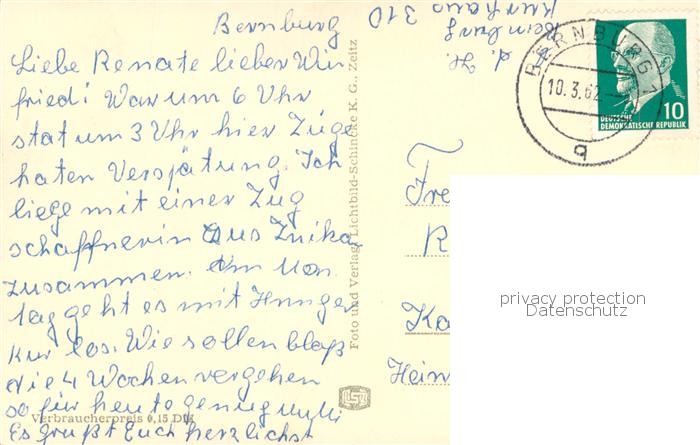 Bernburg
Liebe Renate lieber Win
fried! War um 6 Uhr
stat um 3 Uhr hier Züge
haten Verspätung. Ich
liege mit einer Zug
schaffnerin aus
zusammen. Am Mon
tag geht es mit Hunger
kur los. Wie sollen bloß
die 4 Wochen vergehen
so für heute genug
Es grüßt Euch herzlichst
Verbraucherpreis 0,15 DM
Foto und Verlag: Lichtbild-Schincke K. G., Zeitz
Kurhaus 310
BERNBURG 1
10.3.62
q
DEUTSCHE
DEMOKRATISCHE REPUBLIK
10
Fre
R
Ka
Hein
privacy protection
Datenschutz